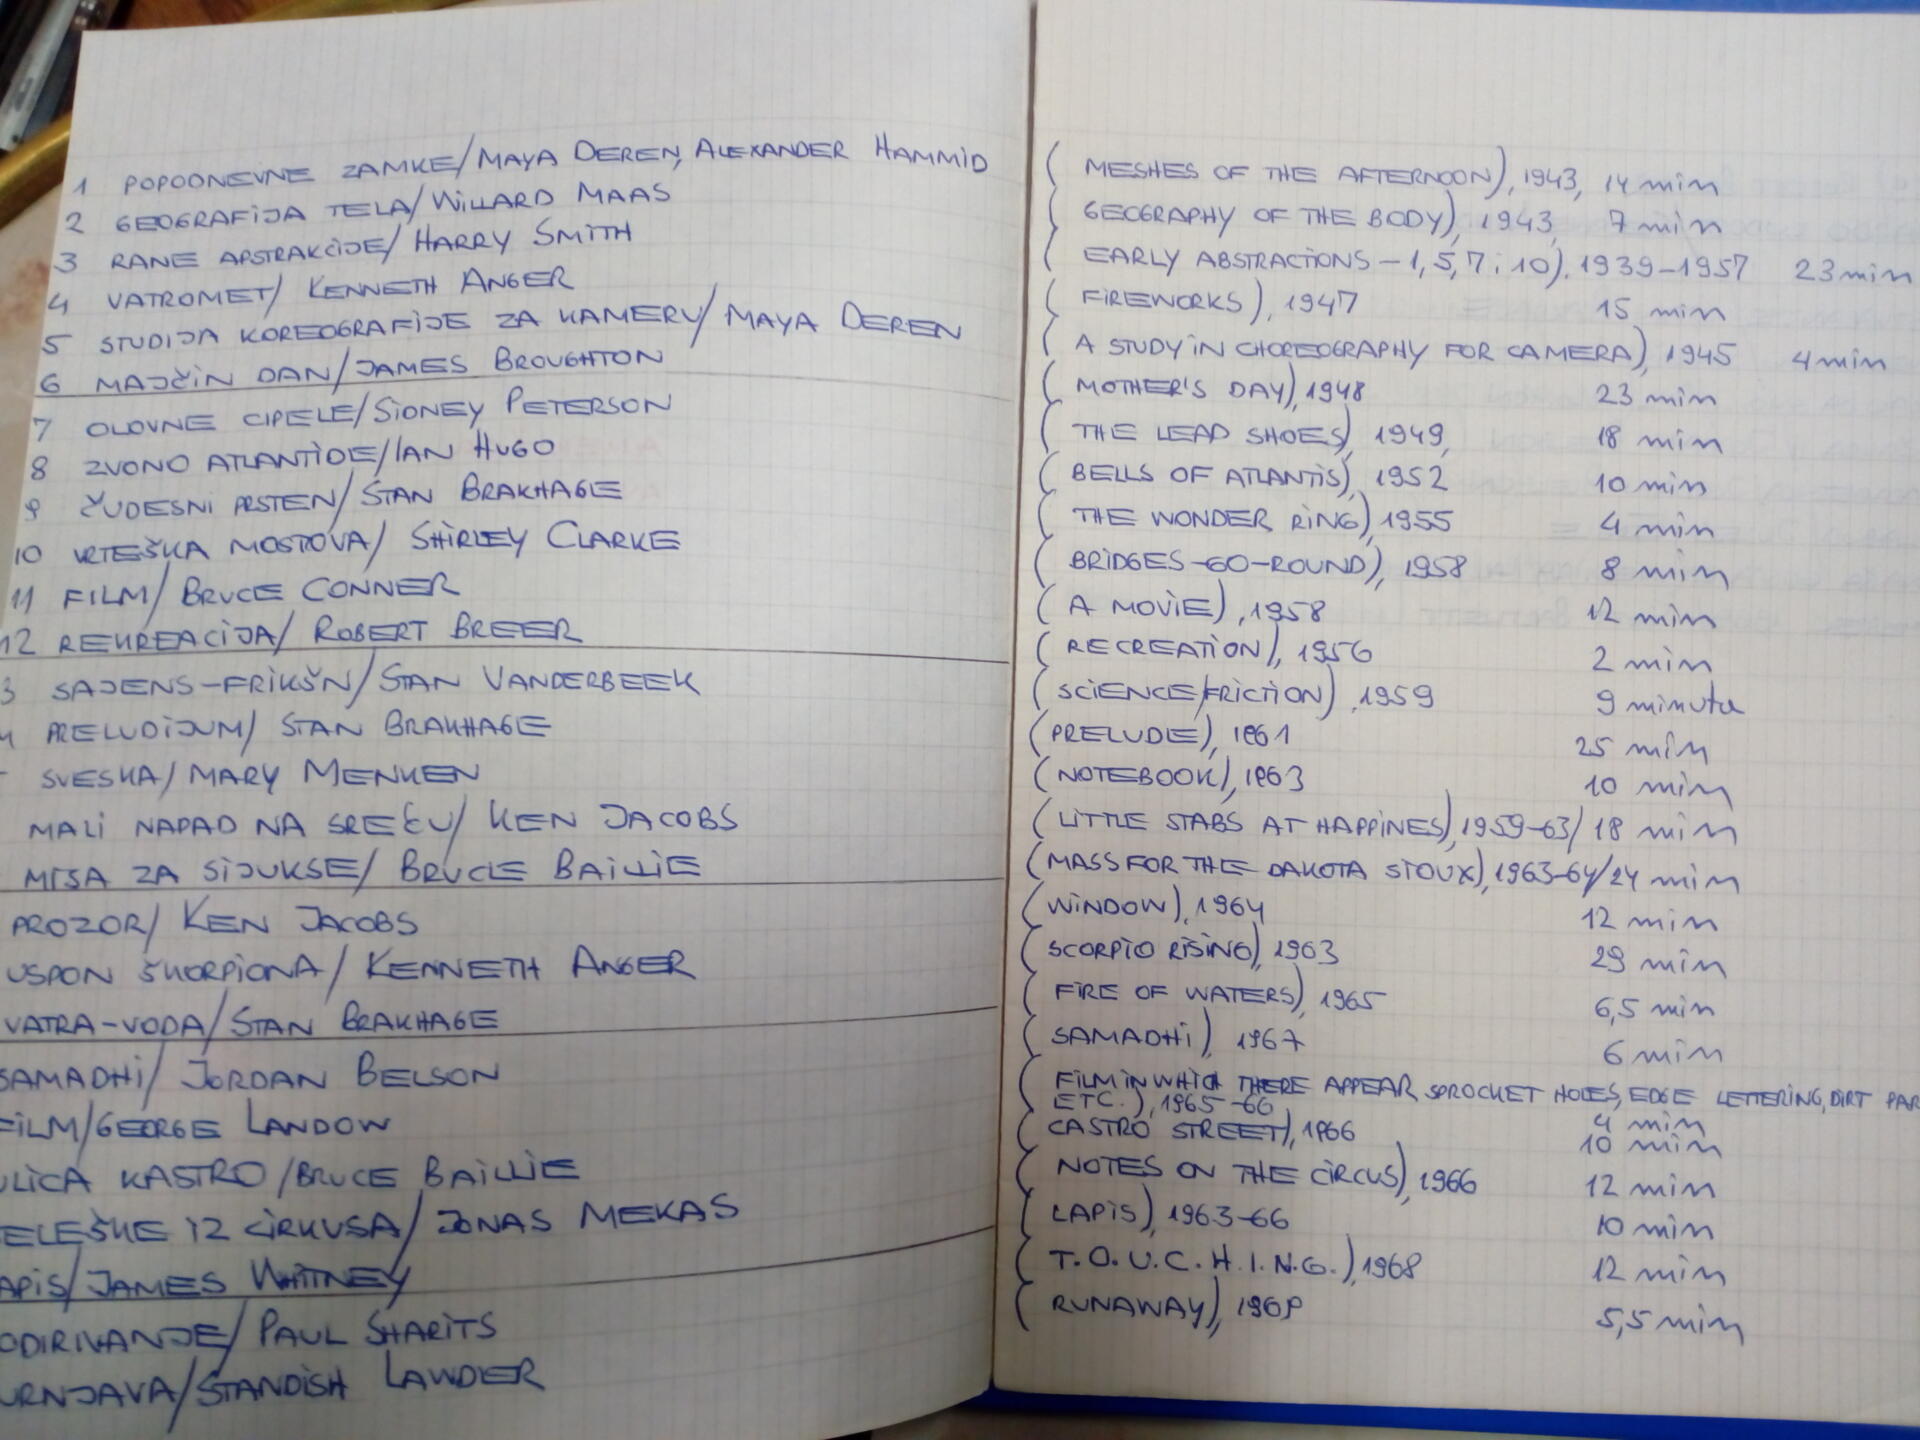 1 POPODNEVNE ZAMKE/MAYA DEREN, ALEXANDER HAMMID
2 GEOGRAFIJA TELA/WILLARD MAAS
3 RANE APSTRAKCIJE/HARRY SMITH
4 VATROMET/KENNETH ANGER
5 STUDIJA KOREOGRAFIJE ZA KAMERU/MAYA DEREN
6 MAJČIN DAN/JAMES BROUGHTON
7 OLOVNE CIPELE/SIDNEY PETERSON
8 ZVONO ATLANTIDE/IAN HUGO
9 ČUDESNI PRSTEN/STAN BRAKHAGE
10 VRTEŠKA MOSTOVA/SHIRLEY CLARKE
11 FILM/BRUCE CONNER
12 REKREACIJA/ROBERT BREER
3 SAJENS-FRIKŠN/STAN VANDERBEEK
PRELUDIJUM/STAN BRAKHAGE
SVESKA/MARY MENKEN
MALI NAPAD NA SREĆU/KEN JACOBS
MISA ZA SIJUKSE/BRUCE BAILLIE
PROZOR/KEN JACOBS
USPON ŠKORPIONA/KENNETH ANGER
VATRA-VODA/STAN BRAKHAGE
SAMADHI/JORDAN BELSON
FILM/GEORGE LANDOW
ULICA KASTRO/BRUCE BAILLIE
ELEŠKE IZ CIRKUSA/JONAS MEKAS
APIS/JAMES WHITNEY
ODIRIVANJE/PAUL SHARITS
URNJAVA/STANDISH LAWDER
(MESHES OF THE AFTERNOON), 1943, 14 min
(GEOGRAPHY OF THE BODY), 1943, 7 min
(EARLY ABSTRACTIONS-1,5,7 i 10), 1939-1957 23 min
(FIREWORKS), 1947 15 min
(A STUDY IN CHOREOGRAPHY FOR CAMERA), 1945 4 min
(MOTHER'S DAY), 1948 23 min
(THE LEAD SHOES), 1949, 18 min
(BELLS OF ATLANTIS), 1952 10 min
(THE WONDER RING), 1955 4 min
(BRIDGES-GO-ROUND), 1958 8 min
(A MOVIE), 1958 12 min
(RECREATION), 1956 2 min
(SCIENCE/FRICTION), 1959 9 minuta
(PRELUDE), 1961 25 min
(NOTEBOOK), 1963 10 min
(LITTLE STABS AT HAPPINES), 1959-63/18 min
(MASS FOR THE DAKOTA SIOUX), 1963-64/24 min
(WINDOW), 1964 12 min
(SCORPIO RISING), 1963 29 min
(FIRE OF WATERS), 1965 6,5 min
(SAMADHI), 1967 6 min
(FILM IN WHICH THERE APPEAR SPROCKET HOLES, EDGE LETTERING, DIRT PAR
ETC.), 1965-66 4 min
(CASTRO STREET), 1966 10 min
(NOTES ON THE CIRCUS), 1966 12 min
(LAPIS), 1963-66 10 min
(T.O.U.C.H.I.N.G.), 1968 12 min
(RUNAWAY), 1969 5,5 min